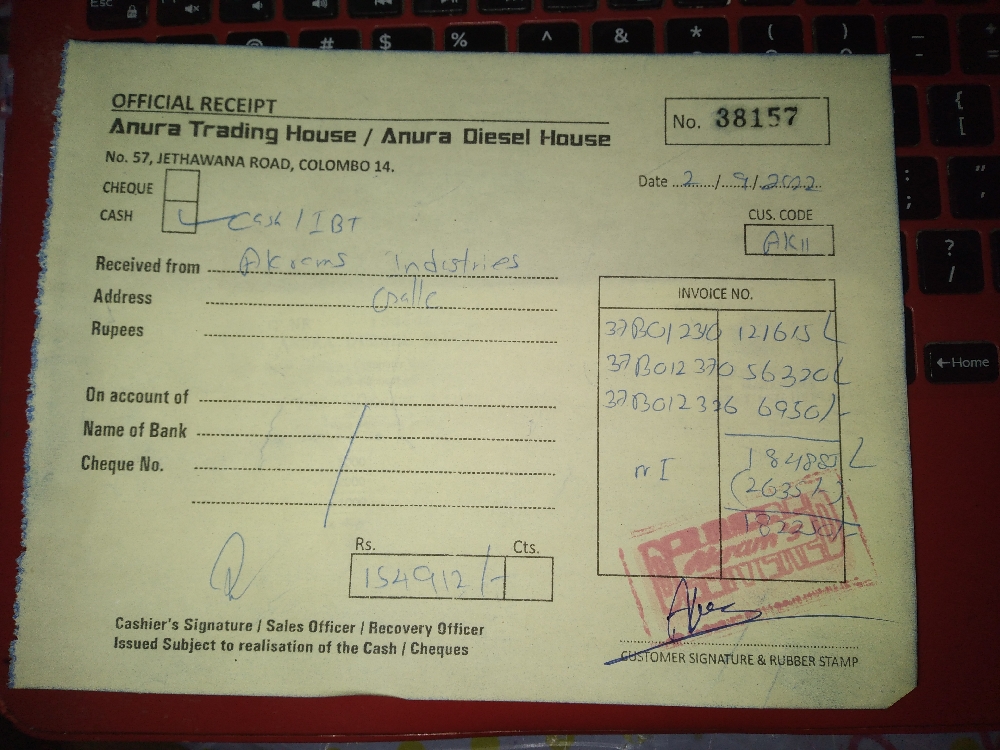 OFFICIAL RECEIPT
Anura Trading House / Anura Diesel House
No. 38157
No. 57, JETHAWANA ROAD, COLOMBO 14.
Date 2 / 9 / 2022
CHEQUE
CASH Cash / IBT
CUS. CODE
AK11
Received from Akrams Industries
Address
Rupees
INVOICE NO.
37B01230 121615/-
37B012370 56320/-
37B012376 6950/-
On account of
Name of Bank
Cheque No.
184885/-
(2635/-)
182250/-
Rs. Cts.
154912/-
Cashier's Signature / Sales Officer / Recovery Officer
Issued Subject to realisation of the Cash / Cheques
CUSTOMER SIGNATURE & RUBBER STAMP
Esc
@ # $ % ^ & * ( ) _
-
{
[
:
;
"
'
?
/
←Home